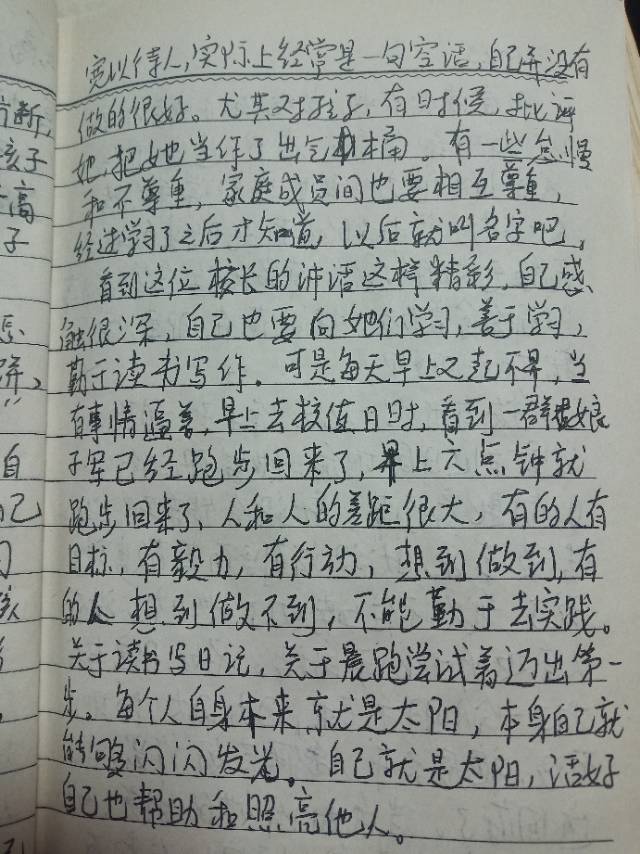 宽以待人,实际上经常是一句空话,自己并没有
做的很好。尤其对孩子,有时候,批评
她,把她当作了出气桶。有一些怠慢
和不尊重,家庭成员间也要相互尊重,
经过学习了之后才知道,以后就叫名字吧,
看到这位校长的讲话这样精彩,自己感
触很深,自己也要向她们学习,善于学习,
勤于读书写作。可是每天早上又起不早,当
有事情逼着,早上去校值日时,看到一群娘
子军已经跑步回来了,早上六点钟就
跑步回来了,人和人的差距很大,有的人有
目标,有毅力,有行动,想到做到,有
的人想到做不到,不能勤于去实践。
关于读书写日记,关于晨跑尝试着迈出第一
步。每个人自身本来就是太阳,本身自己就
能够闪闪发光。自己就是太阳,活好
自己也帮助和照亮他人。
断,
孩子
高
子
自
己